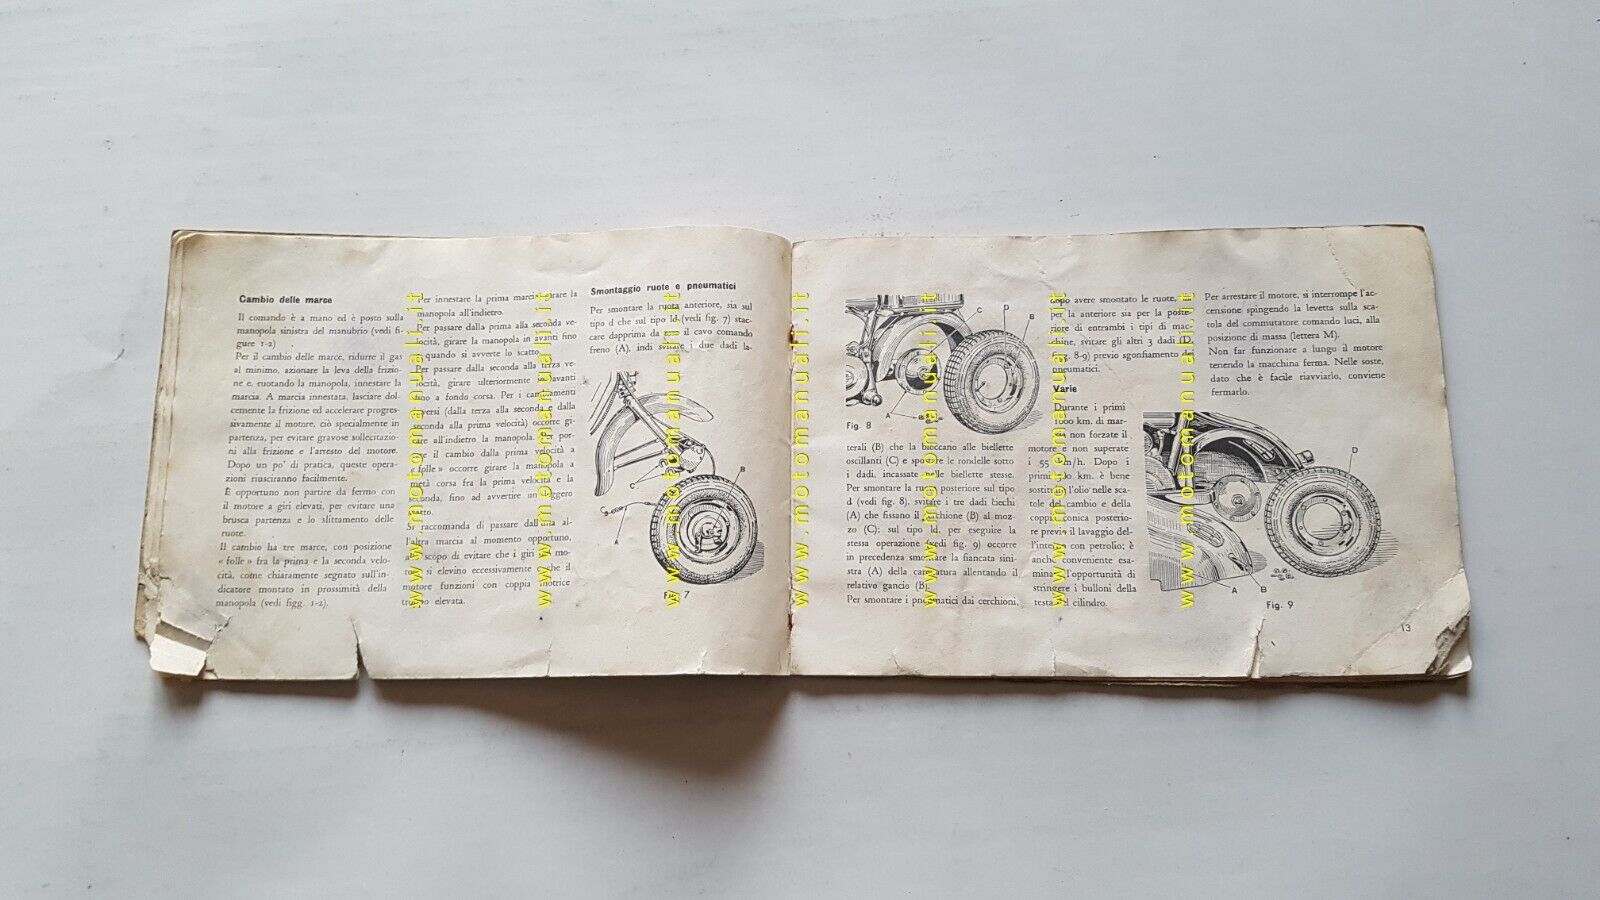 Cambio delle marce
Il comando è a mano ed è posto sulla
manopola sinistra del manubrio (vedi fi-
gure 1-2)
Per il cambio delle marce, ridurre il gas
al minimo, azionare la leva della frizio-
ne e, ruotando la manopola, innestare la
marcia. A marcia innestata, lasciare dol-
cemente la frizione ed accelerare progres-
sivamente il motore, ciò specialmente in
partenza, per evitare gravose sollecitazio-
ni alla frizione e l'arresto del motore.
Dopo un po' di pratica, queste opera-
zioni riusciranno facilmente.
È opportuno non partire da fermo con
il motore a giri elevati, per evitare una
brusca partenza e lo slittamento delle
ruote.
Il cambio ha tre marce, con posizione
« folle » fra la prima e la seconda velo-
cità, come chiaramente segnato sull'in-
dicatore montato in prossimità della
manopola (vedi figg. 1-2).
Per innestare la prima marcia girare la
manopola all'indietro.
Per passare dalla prima alla seconda ve-
locità, girare la manopola in avanti fino
a quando si avverte lo scatto.
Per passare dalla seconda alla terza ve-
locità, girare ulteriormente in avanti
fino a fondo corsa. Per i cambiamenti
inversi (dalla terza alla seconda e dalla
seconda alla prima velocità) occorre gi-
rare all'indietro la manopola. Per por-
tare il cambio dalla prima velocità a
« folle » occorre girare la manopola a
metà corsa fra la prima velocità e la
seconda, fino ad avvertire un leggero
scatto.
Si raccomanda di passare dall'una al-
l'altra marcia al momento opportuno,
allo scopo di evitare che i giri del mo-
tore si elevino eccessivamente o che il
motore funzioni con coppia motrice
troppo elevata.
Smontaggio ruote e pneumatici
Per smontare la ruota anteriore, sia sul
tipo d che sul tipo ld (vedi fig. 7) stac-
care dapprima da essa il cavo comando
freno (A), indi svitare i due dadi la-
B
C
A
Fig. 7
D
C
B
A
Fig. 8
terali (B) che la bloccano alle biellette
oscillanti (C) e spostare le rondelle sotto
i dadi, incassate nelle biellette stesse.
Per smontare la ruota posteriore sul tipo
d (vedi fig. 8), svitare i tre dadi ciechi
(A) che fissano il cerchione (B) al moz-
zo (C); sul tipo ld, per eseguire la
stessa operazione (vedi fig. 9) occorre
in precedenza smontare la fiancata sini-
stra (A) della carenatura allentando il
relativo gancio (B).
Per smontare i pneumatici dai cerchioni,
dopo avere smontato le ruote, sia
per la anteriore sia per la poste-
riore di entrambi i tipi di mac-
chine, svitare gli altri 3 dadi (D,
fig. 8-9) previo sgonfiamento dei
pneumatici.
Varie
Durante i primi
1000 km. di mar-
cia non forzate il
motore e non superate
i 55 km/h. Dopo i
primi km. è bene
sostituire l'olio nelle sca-
tole del cambio e della
coppia conica posterio-
re previo il lavaggio del-
l'interno con petrolio; è
anche conveniente esa-
minare l'opportunità di
stringere i bulloni della
testa del cilindro.
Per arrestare il motore, si interrompe l'ac-
censione spingendo la levetta sulla sca-
tola del commutatore comando luci, alla
posizione di massa (lettera M).
Non far funzionare a lungo il motore
tenendo la macchina ferma. Nelle soste,
dato che è facile riavviarlo, conviene
fermarlo.
D
A
B
Fig. 9
13
www.motomanuali.it
www.motomanuali.it
www.motomanuali.it
www.motomanuali.it
www.motomanuali.it
www.motomanuali.it
www.motomanuali.it